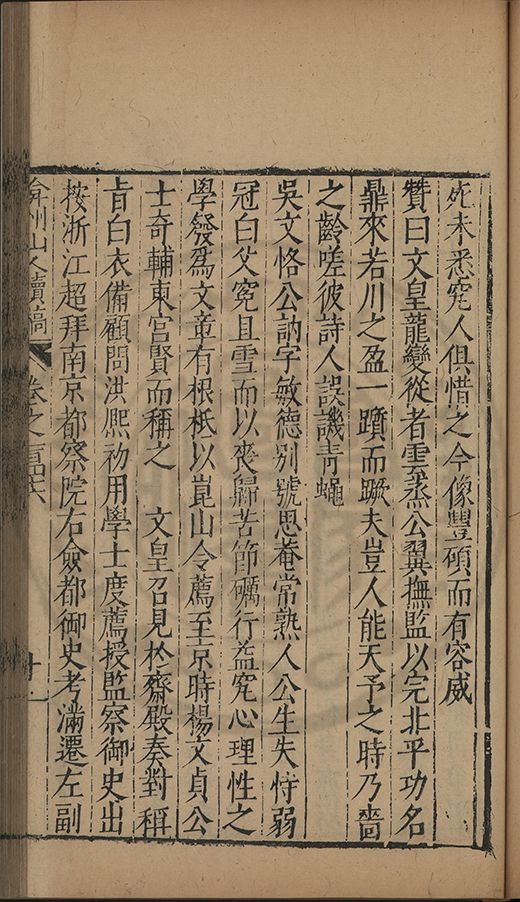 死未悉寃人俱惜之今像豐碩而有容威
贊曰文皇龍變從者雲烝公翼撫監以完北平功名
鼎來若川之盈一躓而蹶夫豈人能天予之時乃嗇
之齡嗟彼詩人誤譏青蠅
吳文恪公訥字敏德別號思菴常熟人公生失恃弱
冠白父寃且雪而以喪歸苦節礪行益究心理性之
學發爲文章有根柢以崑山令薦至京時楊文貞公
士奇輔東宮賢而稱之 文皇召見於齋殿奏對稱
旨白衣備顧問洪熈初用學士度薦授監察御史出
按浙江超拜南京都察院右僉都御史考滿遷左副
弇州山人續稿 卷之一百四十六 十一